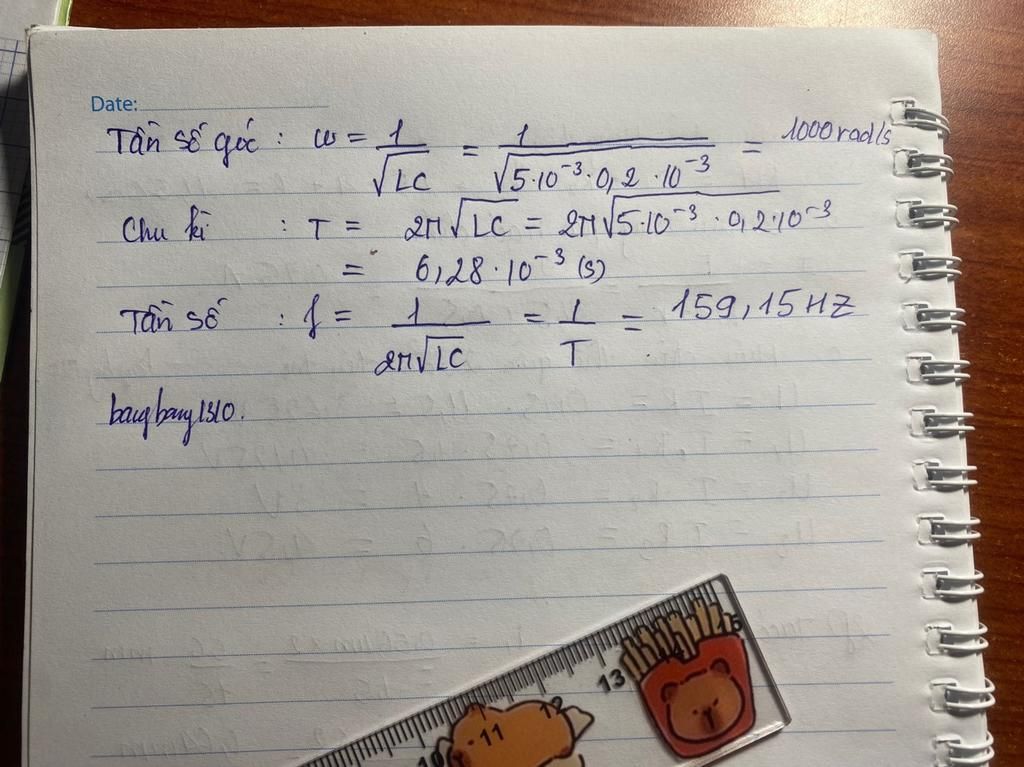 Date:
Tần số góc : ω = 1/√LC = 1/√5·10⁻³·0,2·10⁻³ = 1000 rad/s
Chu kì : T = 2π√LC = 2π√5·10⁻³·0,2·10⁻³
= 6,28·10⁻³ (s)
Tần số : f = 1/2π√LC = 1/T = 159,15 HZ
bangbang1310.
13
12
11
10